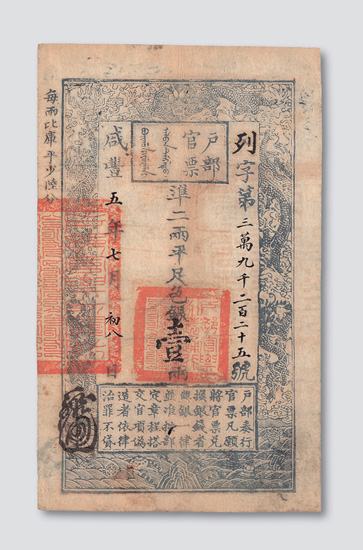 戶部
官票
列字第三萬九千二百二十五號
準二兩平足色銀壹兩
咸豐五年七月初八日
每兩比庫平少陸分
戶部奏行
官票凡願
將官票兌
換銀錢者
與銀一律
並准按部
定章程搭
交官項偽
造者依律
治罪不貸